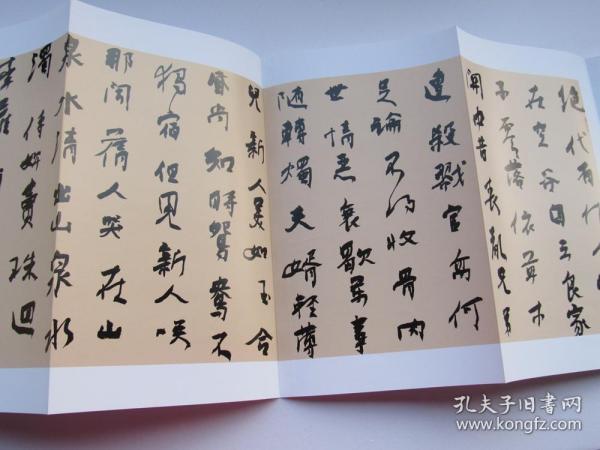 絕代有佳人
在空谷自云良家
子零落依草木
開中昔喪亂兄弟
遭殺戮官高何
足論不得收骨肉
世情惡衰歇萬事
隨轉燭夫婿輕薄
兒新人美如玉合
昏尚知時鴛鴦不
獨宿但見新人咲
那聞舊人哭在山
泉水清出山泉水
濁侍婢賣珠迴
牽蘿
孔夫子旧书网
www.kongfz.com